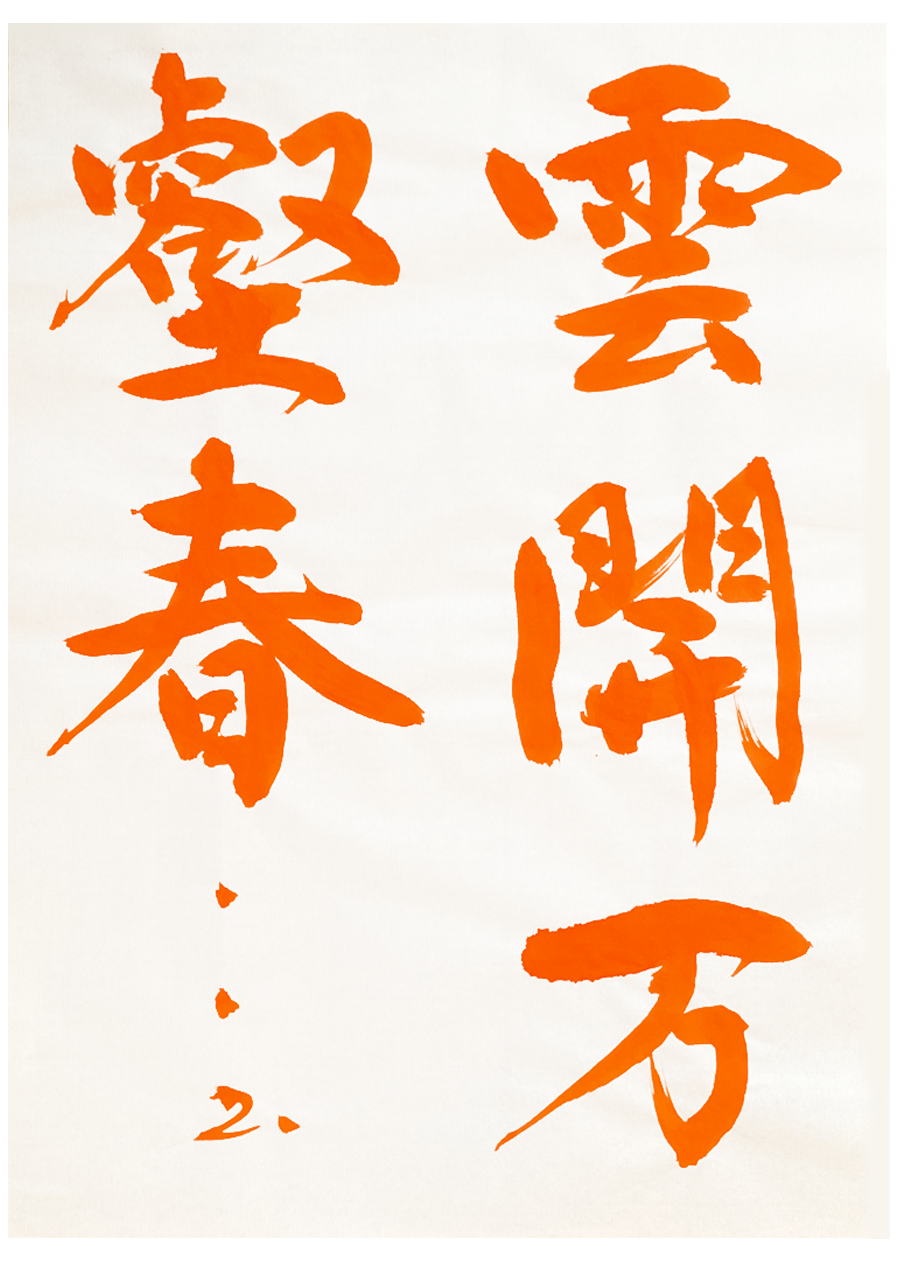 雲開万
壑春